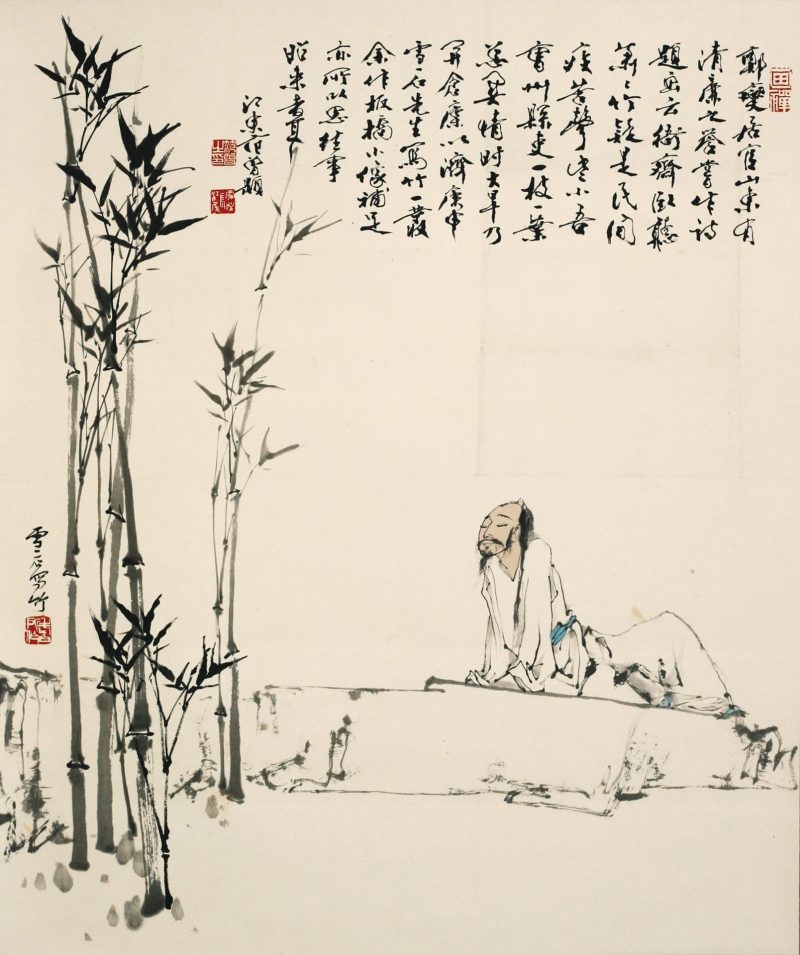 鄭燮居官山東有
清廉之譽嘗作詩
題畫云衙齋臥聽
蕭〻竹疑是民間
疾苦聲些小吾
曹州縣吏一枝一葉
總關情時大旱乃
開倉廩以濟庚申
雪石先生寫竹一叢
余作板橋小像補足
亦所以思往事
昭來者耳
江東范曾題
雪石寫竹